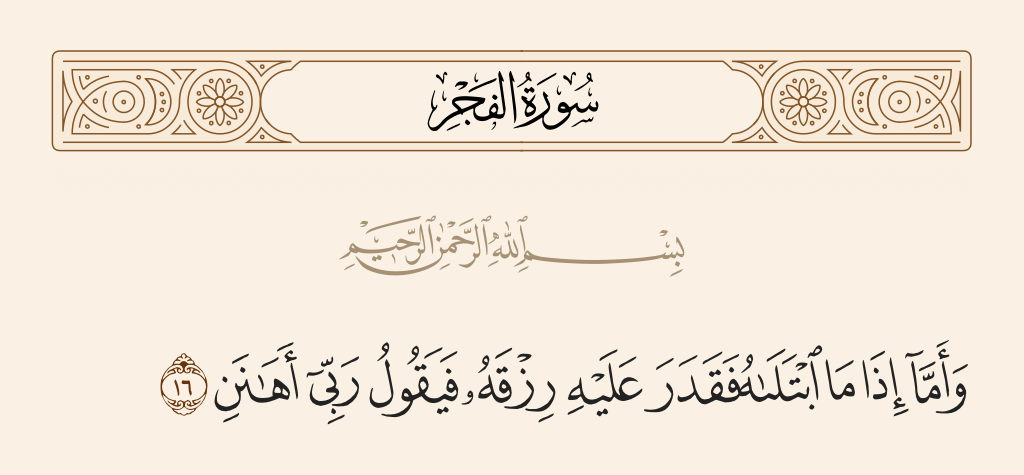 سُورَةُ الفَجْرِ
بِسْمِ ٱللَّهِ ٱلرَّحْمَٰنِ ٱلرَّحِيمِ
وَأَمَّآ إِذَا مَا ٱبْتَلَىٰهُ فَقَدَرَ عَلَيْهِ رِزْقَهُۥ فَيَقُولُ رَبِّىٓ أَهَـٰنَنِ ١٦